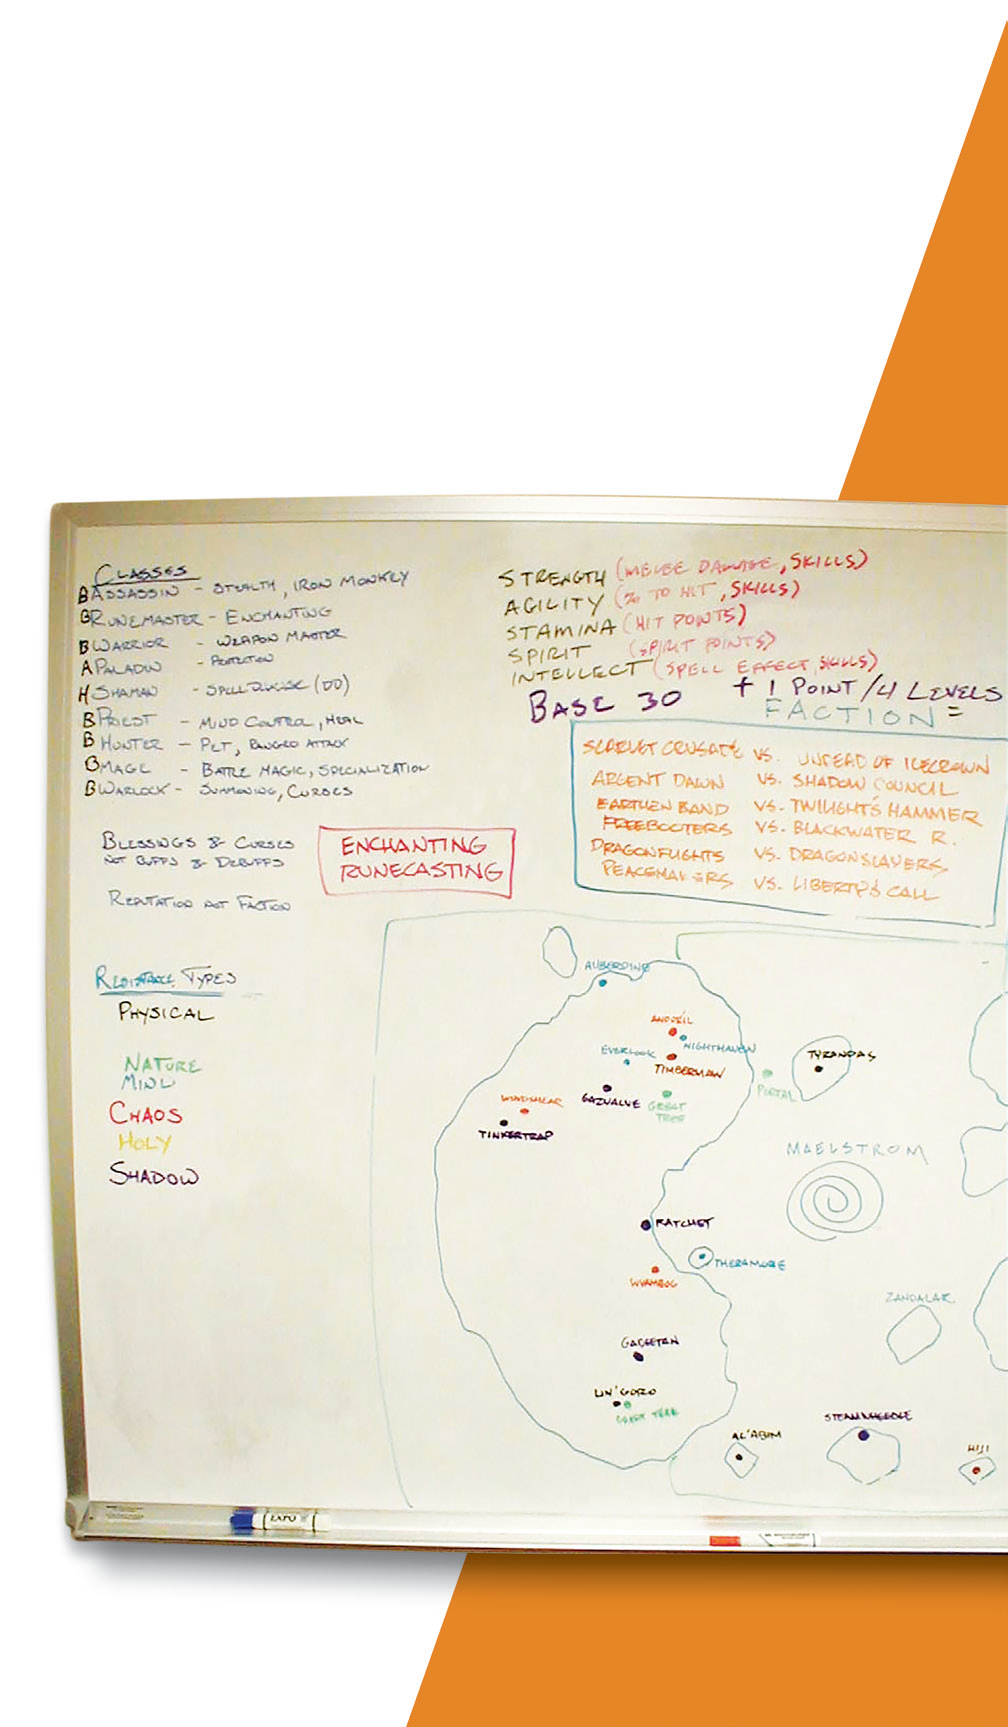 CLASSES
B ASSASSIN - STEALTH, IRON MONKEY
B RUNEMASTER - ENCHANTING
B WARRIOR - WEAPON MASTER
A PALADIN - PROTECTION
H SHAMAN - SPELL (DD)
B PRIEST - MIND CONTROL, HEAL
B HUNTER - PET, RANGED ATTACK
B MAGE - BATTLE MAGIC, SPECIALIZATION
B WARLOCK - SUMMONING, CURSES
BLESSINGS & CURSES
NOT BUFFS & DEBUFFS
REPUTATION NOT FACTION
ENCHANTING
RUNECASTING
RESISTANCE TYPES
PHYSICAL
NATURE
MIND
CHAOS
HOLY
SHADOW
STRENGTH (MELEE DAMAGE, SKILLS)
AGILITY (% TO HIT, SKILLS)
STAMINA (HIT POINTS)
SPIRIT (SPIRIT POINTS)
INTELLECT (SPELL EFFECT, SKILLS)
BASE 30 + 1 POINT/4 LEVELS
FACTION =
SCARLET CRUSADE VS. UNDEAD OF ICECROWN
ARGENT DAWN VS. SHADOW COUNCIL
EARTHEN BAND VS. TWILIGHT'S HAMMER
FREEBOOTERS VS. BLACKWATER R.
DRAGONFLIGHTS VS. DRAGONSLAYERS
PEACEMAKERS VS. LIBERTY'S CALL
AUBERDINE
ANDORIL
NIGHTHAVEN
EVERLOOK
TIMBERMAW
TYRANDAS
PORTAL
GAZVALVE
GREAT
TREE
WINDSHEAR
TINKERTRAP
MAELSTROM
RATCHET
THERAMORE
WYRMBOG
ZANDALAR
GADGETZAN
UN'GORO
GREAT TREE
AL'ABIM
STEAMWHEEDLE
HIJI
EXPO